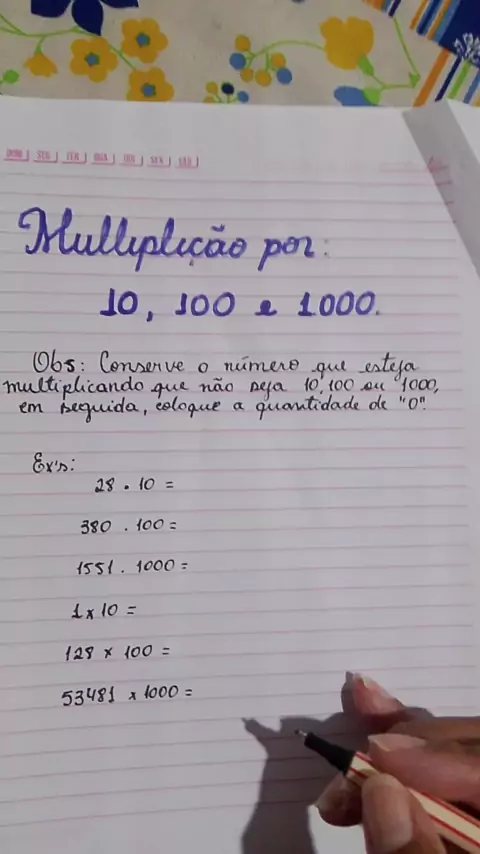 DOM SEG TER QUA QUI SEX SAB
Multiplição por:
10, 100 e 1000.
Obs: Conserve o número que esteja
multiplicando que não seja 10, 100 ou 1000,
em seguida, coloque a quantidade de "0".
Ex's:
28 . 10 =
380 . 100 =
1551 . 1000 =
1 x 10 =
128 x 100 =
53481 x 1000 =